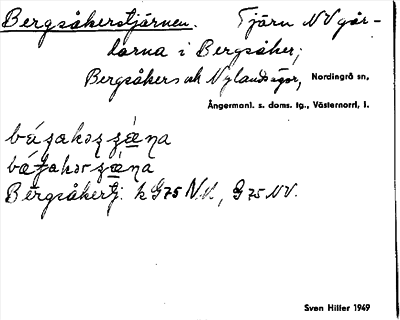 Bergsåkerstjärnen. Tjärn NV går-
darna i Bergsåker;
Bergsåkers och Nylands ägor, Nordingrå sn,
Ångermanl. s. doms. tg., Västernorrl, l.
Bergsåkerstj: k G75 NV, G 75 NV.
Sven Hiller 1949